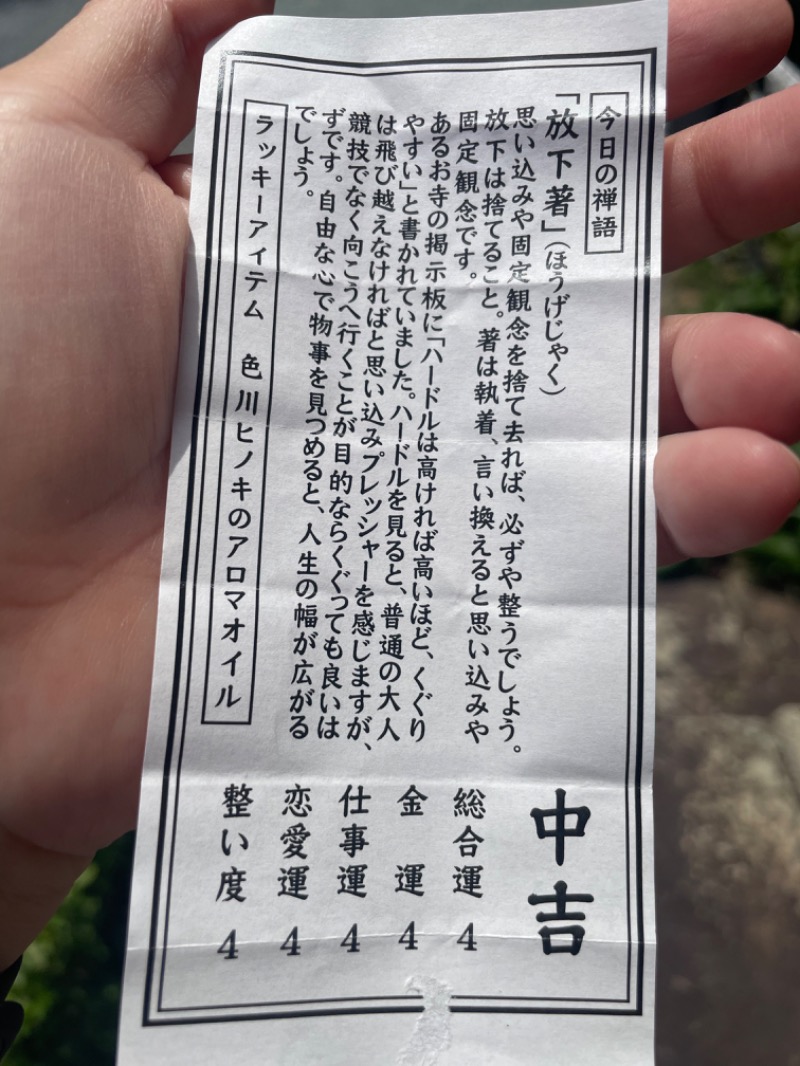 今日の禅語
「放下著」（ほうげじゃく）
思い込みや固定観念を捨て去れば、必ずや整うでしょう。
放下は捨てること。著は執着、言い換えると思い込みや
固定観念です。
あるお寺の掲示板に「ハードルは高ければ高いほど、くぐり
やすい」と書かれていました。ハードルを見ると、普通の大人
は飛び越えなければと思い込みプレッシャーを感じますが、
競技でなく向こうへ行くことが目的ならくぐっても良いは
ずです。自由な心で物事を見つめると、人生の幅が広がる
でしょう。
ラッキーアイテム 色川ヒノキのアロマオイル
中吉
総合運 4
金運 4
仕事運 4
恋愛運 4
整い度 4